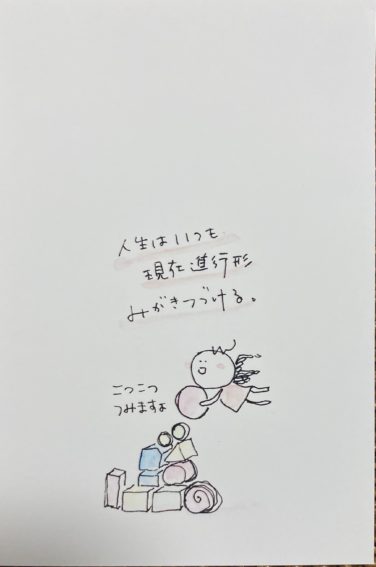 人生はいつも
現在進行形
みがきつづける。
こつこつ
つみますよ